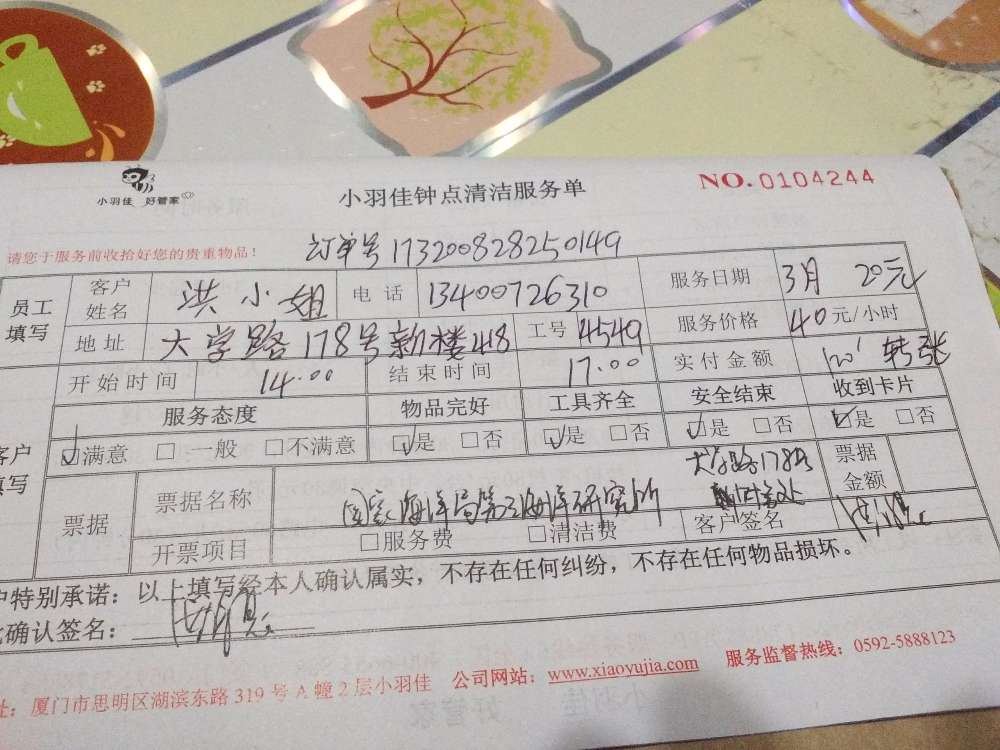 小羽佳 好管家
小羽佳钟点清洁服务单
NO.0104244
请您于服务前收拾好您的贵重物品！
订单号173200828250149
员工填写 客户姓名 洪小姐 电话 13400726310 服务日期 3月 20元
地址 大学路178号新楼418 工号 4549 服务价格 40元/小时
开始时间 14:00 结束时间 17:00 实付金额 120 转账
服务态度 物品完好 工具齐全 安全结束 收到卡片
客户填写 ☑满意 □一般 □不满意 ☑是 □否 ☑是 □否 ☑是 □否 ☑是 □否
票据 票据名称 国家海洋局第三海洋研究所 大学路178号 票据金额
开票项目 □服务费 □清洁费 客户签名
户特别承诺：以上填写经本人确认属实，不存在任何纠纷，不存在任何物品损坏。
确认签名：
址：厦门市思明区湖滨东路 319 号 A 幢 2 层小羽佳 公司网站：www.xiaoyujia.com 服务监督热线：0592-5888123